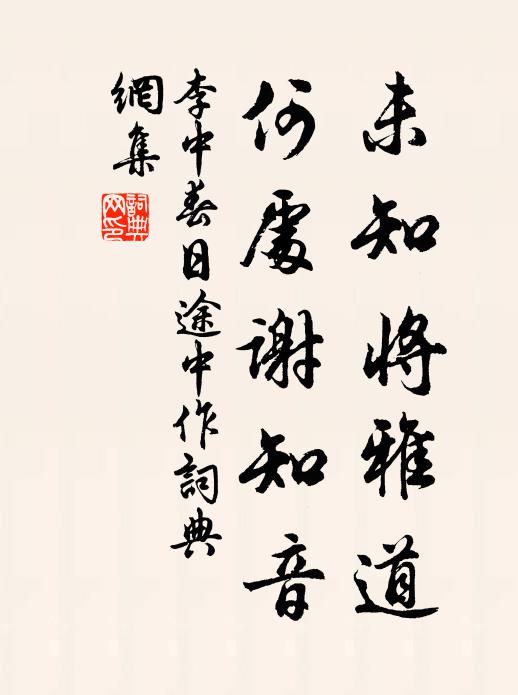 未知將雅道
何處謝知音
李中春日途中作詞典
網集
詞典
网印